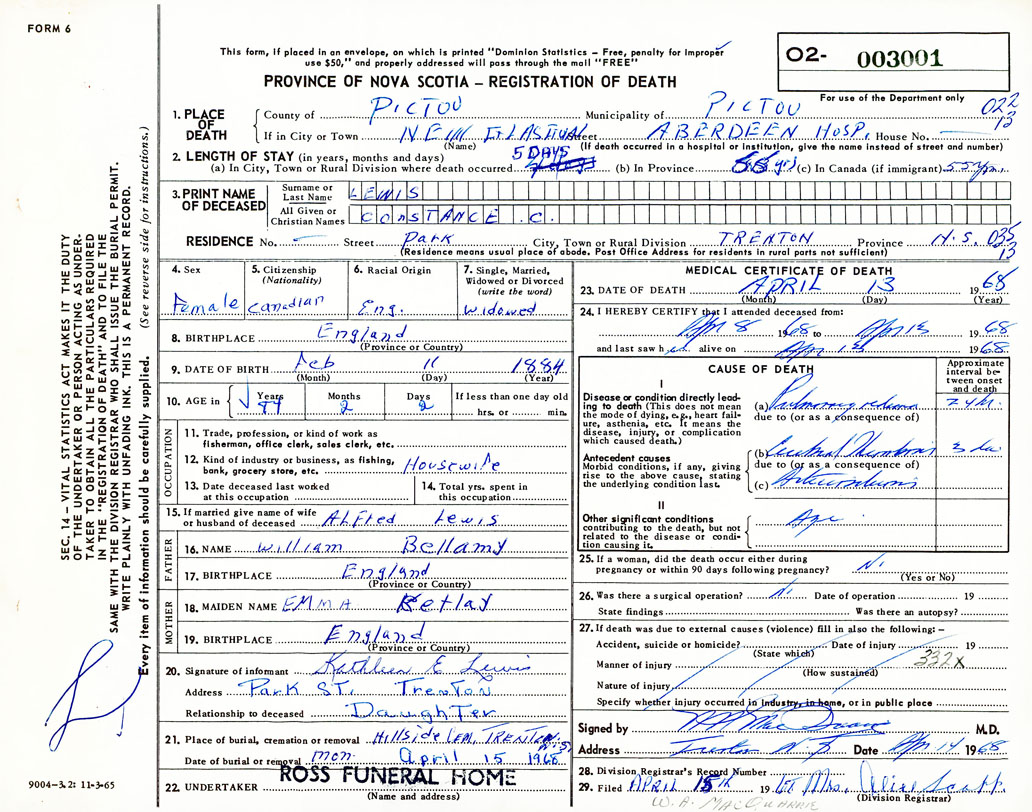 FORM 6
This form, if placed in an envelope, on which is printed "Dominion Statistics – Free, penalty for improper
use $50," and properly addressed will pass through the mail "FREE"
PROVINCE OF NOVA SCOTIA – REGISTRATION OF DEATH
O2- 003001
For use of the Department only
1. PLACE OF DEATH
County of PICTOU Municipality of PICTOU 022
If in City or Town NEW GLASGOW Street ABERDEEN HOSP. House No. 13
(Name) (If death occurred in a hospital or institution, give the name instead of street and number)
2. LENGTH OF STAY (in years, months and days) 5 DAYS
(a) In City, Town or Rural Division where death occurred (b) In Province yrs (c) In Canada (if immigrant) 55 yrs.
3. PRINT NAME OF DECEASED
Surname or Last Name LEWIS
All Given or Christian Names CONSTANCE .C.
RESIDENCE No. – Street Park City, Town or Rural Division TRENTON Province N.S. 035
(Residence means usual place of abode. Post Office Address for residents in rural parts not sufficient) 13
4. Sex Female
5. Citizenship (Nationality) Canadian
6. Racial Origin Eng.
7. Single, Married, Widowed or Divorced (write the word) Widowed
8. BIRTHPLACE England
(Province or Country)
9. DATE OF BIRTH Feb 11 1884
(Month) (Day) (Year)
10. AGE in Years 84 Months 2 Days 2 If less than one day old
hrs. or min.
OCCUPATION
11. Trade, profession, or kind of work as
fisherman, office clerk, sales clerk, etc.
12. Kind of industry or business, as fishing,
bank, grocery store, etc. Housewife
13. Date deceased last worked
at this occupation
14. Total yrs. spent in
this occupation
15. If married give name of wife
or husband of deceased Alfred Lewis
FATHER
16. NAME William Bellamy
17. BIRTHPLACE England
(Province or Country)
MOTHER
18. MAIDEN NAME EMMA
19. BIRTHPLACE England
(Province or Country)
20. Signature of informant Kathleen E Lewis
Address Park ST. Trenton
Relationship to deceased Daughter
21. Place of burial, cremation or removal Hillside CEM. TRENTON N.S.
Date of burial or removal Mon April 15 1968
22. UNDERTAKER ROSS FUNERAL HOME
(Name and address)
MEDICAL CERTIFICATE OF DEATH
23. DATE OF DEATH APRIL 13 1968
(Month) (Day) (Year)
24. I HEREBY CERTIFY that I attended deceased from:
Apr 8 1968 to Apr 13 1968
and last saw her alive on Apr 13 1968
CAUSE OF DEATH
Approximate interval between onset and death
I
Disease or condition directly leading to death (This does not mean the mode of dying, e.g., heart failure, asthenia, etc. It means the disease, injury, or complication which caused death.)
(a) Pulmonary edema
due to (or as a consequence of)
Antecedent causes
Morbid conditions, if any, giving rise to the above cause, stating the underlying condition last.
(b) Cerebral Thrombosis
due to (or as a consequence of)
(c)
II
Other significant conditions contributing to the death, but not related to the disease or condition causing it.
Age
25. If a woman, did the death occur either during
pregnancy or within 90 days following pregnancy? No
(Yes or No)
26. Was there a surgical operation? No Date of operation 19
State findings Was there an autopsy?
27. If death was due to external causes (violence) fill in also the following: –
Accident, suicide or homicide? Date of injury 19
(State which) 332X
Manner of injury
(How sustained)
Nature of injury
Specify whether injury occurred in industry, in home, or in public place
Signed by M.D.
Address Date Apr 14 1968
28. Division Registrar's Record Number
29. Filed APRIL 15th 19 Mrs.
(Division Registrar)
W. A. MacQuarrie
SEC. 14 – VITAL STATISTICS ACT MAKES IT THE DUTY
OF THE UNDERTAKER OR PERSON ACTING AS UNDER-
TAKER TO OBTAIN ALL THE PARTICULARS REQUIRED
IN THE "REGISTRATION OF DEATH" AND TO FILE THE
SAME WITH THE DIVISION REGISTRAR WHO SHALL ISSUE THE BURIAL PERMIT.
WRITE PLAINLY WITH UNFADING INK. THIS IS A PERMANENT RECORD.
Every item of information should be carefully supplied. (See reverse side for instructions.)
9004-3.2: 11-3-65